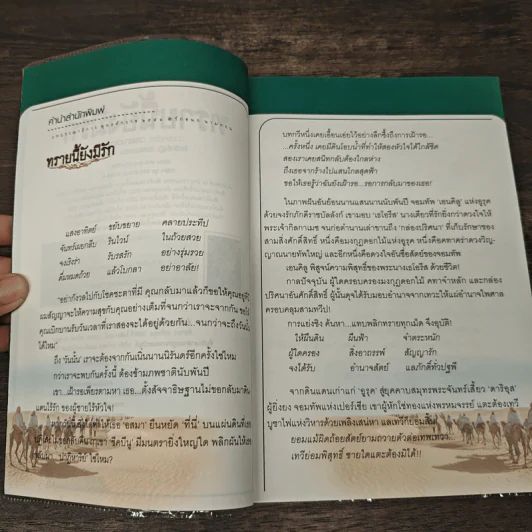 คำนำสำนักพิมพ์
ทรายนี้ยังมีรัก
แสงอาทิตย์ ขยับขยาย คลายประทีป
จันทร์แยกลีบ รินไวน์ ในถ้วยสวย
จงเริงร่า รับรสรัก อย่างรุ่มรวย
ดื่มหมดถ้วย แล้วโบกลา อย่าอาลัย!
"อย่ากังวลไปกับโชคชะตาที่มี คุณกลับมาแล้วก็ขอให้คุณอยู่ที่นี่
ผมสัญญาจะให้ความสุขกับคุณอย่างเต็มที่จนกว่าเราจะจากกัน
คุณเบิกบานรับวันเวลาที่เราสองจะได้อยู่ด้วยกัน...จนกว่าจะถึงวันนั้น
ได้ไหม"
ถึง 'วันนั้น' เราจะต้องจากกันเนิ่นนานนิรันดร์อีกครั้งใช่ไหม
กว่าเราจะพบกันครั้งนี้ ต้องข้ามภพชาตินับพันปี
เขา...เฝ้ารอเพียรตามหา เธอ...ตั้งสัจจาธิษฐานไม่ขอกลับมาดิน
แดนไร้รัก ของผู้ชายไร้หัวใจ!
ให้เธอ 'อสมา' ยืนหยัด 'ที่นี่' บนแผ่นดินที่
'ชีคบีนู' มีมนตรายิ่งใหญ่ใด พลิกผันให้
'ปาฏิหาริย์' ใช่ไหม?
บทกวีหนึ่งเคยเอื้อนเอ่ยไว้อย่างลึกซึ้งถึงการเฝ้ารอ...
...ครั้งหนึ่ง เคยมีดินโอบน้ำที่ทำให้สองหัวใจได้ใกล้ชิด
สองเราเคยสนิทกลับต้องไกลห่าง
ถึงเธอจากร้างไปแสนไกลสุดฟ้า
ขอให้เธอรู้ว่าฉันยังเฝ้ารอ...รอการกลับมาของเธอ!
ในภาพฝันอันย้อนนานแสนนานนับพันปี จอมทัพ 'เอนคิลู' แห่งอูรุค
ด้วยจงรักภักดีราชบัลลังก์ เขามอบ 'เฮไอรีส' นางเดียวที่รักยิ่งกว่าดวงใจให้
พระเจ้ากิลกาเมช จนก่อตำนานเล่าขานถึง 'กล่องปริศนา' ที่เก็บรักษาของ
สามสิ่งศักดิ์สิทธิ์ หนึ่งคือมงกุฎดอกไม้แห่งอูรุค หนึ่งคือคทาคร่าดวงวิญ-
ญาณนายทัพใหญ่ และอีกหนึ่งคือดวงใจอันซื่อสัตย์ของจอมทัพ
เอนคิลู พิสูจน์ความพิสุทธิ์ของพระนางเฮไอรีส ด้วยชีวิต!
กาลปัจจุบัน ผู้ใดครอบครองมงกุฎดอกไม้ คทาจ้าวหล้า และกล่อง
ปริศนาอันศักดิ์สิทธิ์ ผู้นั้นดุจได้รับมอบอำนาจจากเทวะให้แผ่อำนาจไพศาล
ครอบคลุมสามทวีป!
การแย่งชิง ค้นหา...แทบพลิกทรายทุกเม็ด จึงอุบัติ!
ให้ผืนดิน ผืนฟ้า จำตระหนัก
ผู้ใดครอง สิ่งอาถรรพ์ สัญญารัก
จงได้รับ อำนาจสลัย แลภักดิ์ทั่วปฐพี
จากดินแดนเก่าแก่ 'อูรุค' สู่ยุคคาบสมุทรพระจันทร์เสี้ยว 'ดาริอุส'
ผู้ยิ่งยง จอมทัพแห่งเปอร์เซีย เขาผู้หักโซ่ทองแห่งพรหมจรรย์ แตะต้องเทวี
บูชาไฟแห่งวิหารด้วยเพลิงเสน่หา แลเทวีก็ยอมสิ้น
ยอมแม้ผิดถ้อยสัตย์ยามถวายตัวต่อเทพเทวา
เทวีย่อมพิสุทธิ์ ชายใดแตะต้องมิได้!!